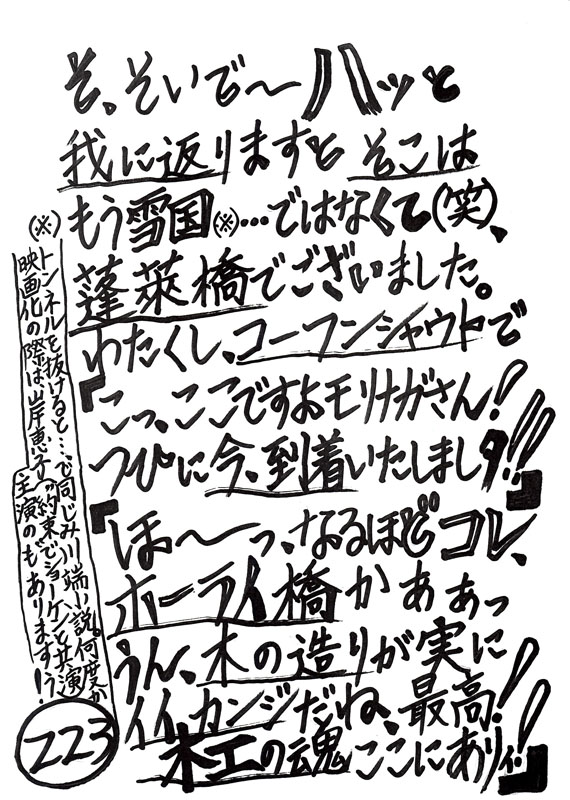 そ、そいで～ハッと
我に返りますと そこは
もう雪国(※)…ではなくて(笑)、
蓬萊橋でございました。
わたくし、コーフンシャウトで
『こっ、ここですよモリナガさん!
つびに今、到着いたしましタ!!!』
『ほ～っ、なるほどコレ、
ホーライ橋かぁぁっ
うん、木の造りが実に
イイカンジだね、最高!!
木工の魂ここにありィ!』
(※)トンネルを抜けると…で同じみ川端小説。何度か
映画化の際は岸恵子(“約束”でショーケンと共演)
主演のもありますぅ!
223